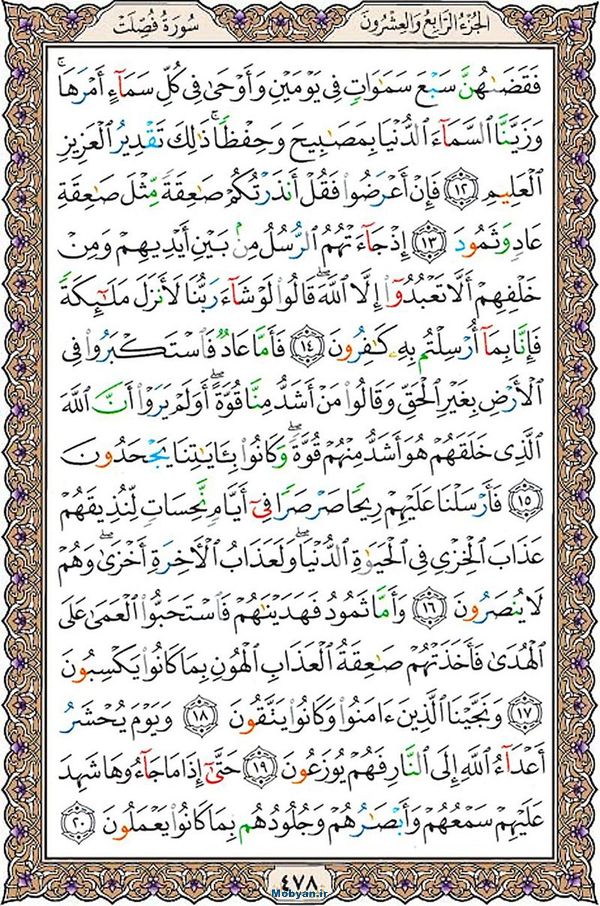 الجُزءُ الرَّابِعُ وَالعِشْرُونَ
سُورَةُ فُصِّلَتْ
فَقَضَىٰهُنَّ سَبْعَ سَمَٰوَاتٍ فِي يَوْمَيْنِ وَأَوْحَىٰ فِي كُلِّ سَمَآءٍ أَمْرَهَاۚ
وَزَيَّنَّا ٱلسَّمَآءَ ٱلدُّنْيَا بِمَصَٰبِيحَ وَحِفْظًاۚ ذَٰلِكَ تَقْدِيرُ ٱلْعَزِيزِ
ٱلْعَلِيمِ ١٢ فَإِنْ أَعْرَضُوا۟ فَقُلْ أَنذَرْتُكُمْ صَٰعِقَةً مِّثْلَ صَٰعِقَةِ
عَادٍ وَثَمُودَ ١٣ إِذْ جَآءَتْهُمُ ٱلرُّسُلُ مِنۢ بَيْنِ أَيْدِيهِمْ وَمِنْ
خَلْفِهِمْ أَلَّا تَعْبُدُوٓا۟ إِلَّا ٱللَّهَۖ قَالُوا۟ لَوْ شَآءَ رَبُّنَا لَأَنزَلَ مَلَٰٓئِكَةً
فَإِنَّا بِمَآ أُرْسِلْتُم بِهِۦ كَٰفِرُونَ ١٤ فَأَمَّا عَادٌ فَٱسْتَكْبَرُوا۟ فِي
ٱلْأَرْضِ بِغَيْرِ ٱلْحَقِّ وَقَالُوا۟ مَنْ أَشَدُّ مِنَّا قُوَّةًۖ أَوَلَمْ يَرَوْا۟ أَنَّ ٱللَّهَ
ٱلَّذِي خَلَقَهُمْ هُوَ أَشَدُّ مِنْهُمْ قُوَّةًۖ وَكَانُوا۟ بِـَٔايَٰتِنَا يَجْحَدُونَ
١٥ فَأَرْسَلْنَا عَلَيْهِمْ رِيحًا صَرْصَرًا فِيٓ أَيَّامٍ نَّحِسَاتٍ لِّنُذِيقَهُمْ
عَذَابَ ٱلْخِزْيِ فِي ٱلْحَيَوٰةِ ٱلدُّنْيَاۖ وَلَعَذَابُ ٱلْـَٔاخِرَةِ أَخْزَىٰۖ وَهُمْ
لَا يُنصَرُونَ ١٦ وَأَمَّا ثَمُودُ فَهَدَيْنَٰهُمْ فَٱسْتَحَبُّوا۟ ٱلْعَمَىٰ عَلَى
ٱلْهُدَىٰ فَأَخَذَتْهُمْ صَٰعِقَةُ ٱلْعَذَابِ ٱلْهُونِ بِمَا كَانُوا۟ يَكْسِبُونَ
١٧ وَنَجَّيْنَا ٱلَّذِينَ ءَامَنُوا۟ وَكَانُوا۟ يَتَّقُونَ ١٨ وَيَوْمَ يُحْشَرُ
أَعْدَآءُ ٱللَّهِ إِلَى ٱلنَّارِ فَهُمْ يُوزَعُونَ ١٩ حَتَّىٰٓ إِذَا مَا جَآءُوهَا شَهِدَ
عَلَيْهِمْ سَمْعُهُمْ وَأَبْصَٰرُهُمْ وَجُلُودُهُم بِمَا كَانُوا۟ يَعْمَلُونَ ٢٠
٤٧٨
Mobyan.ir